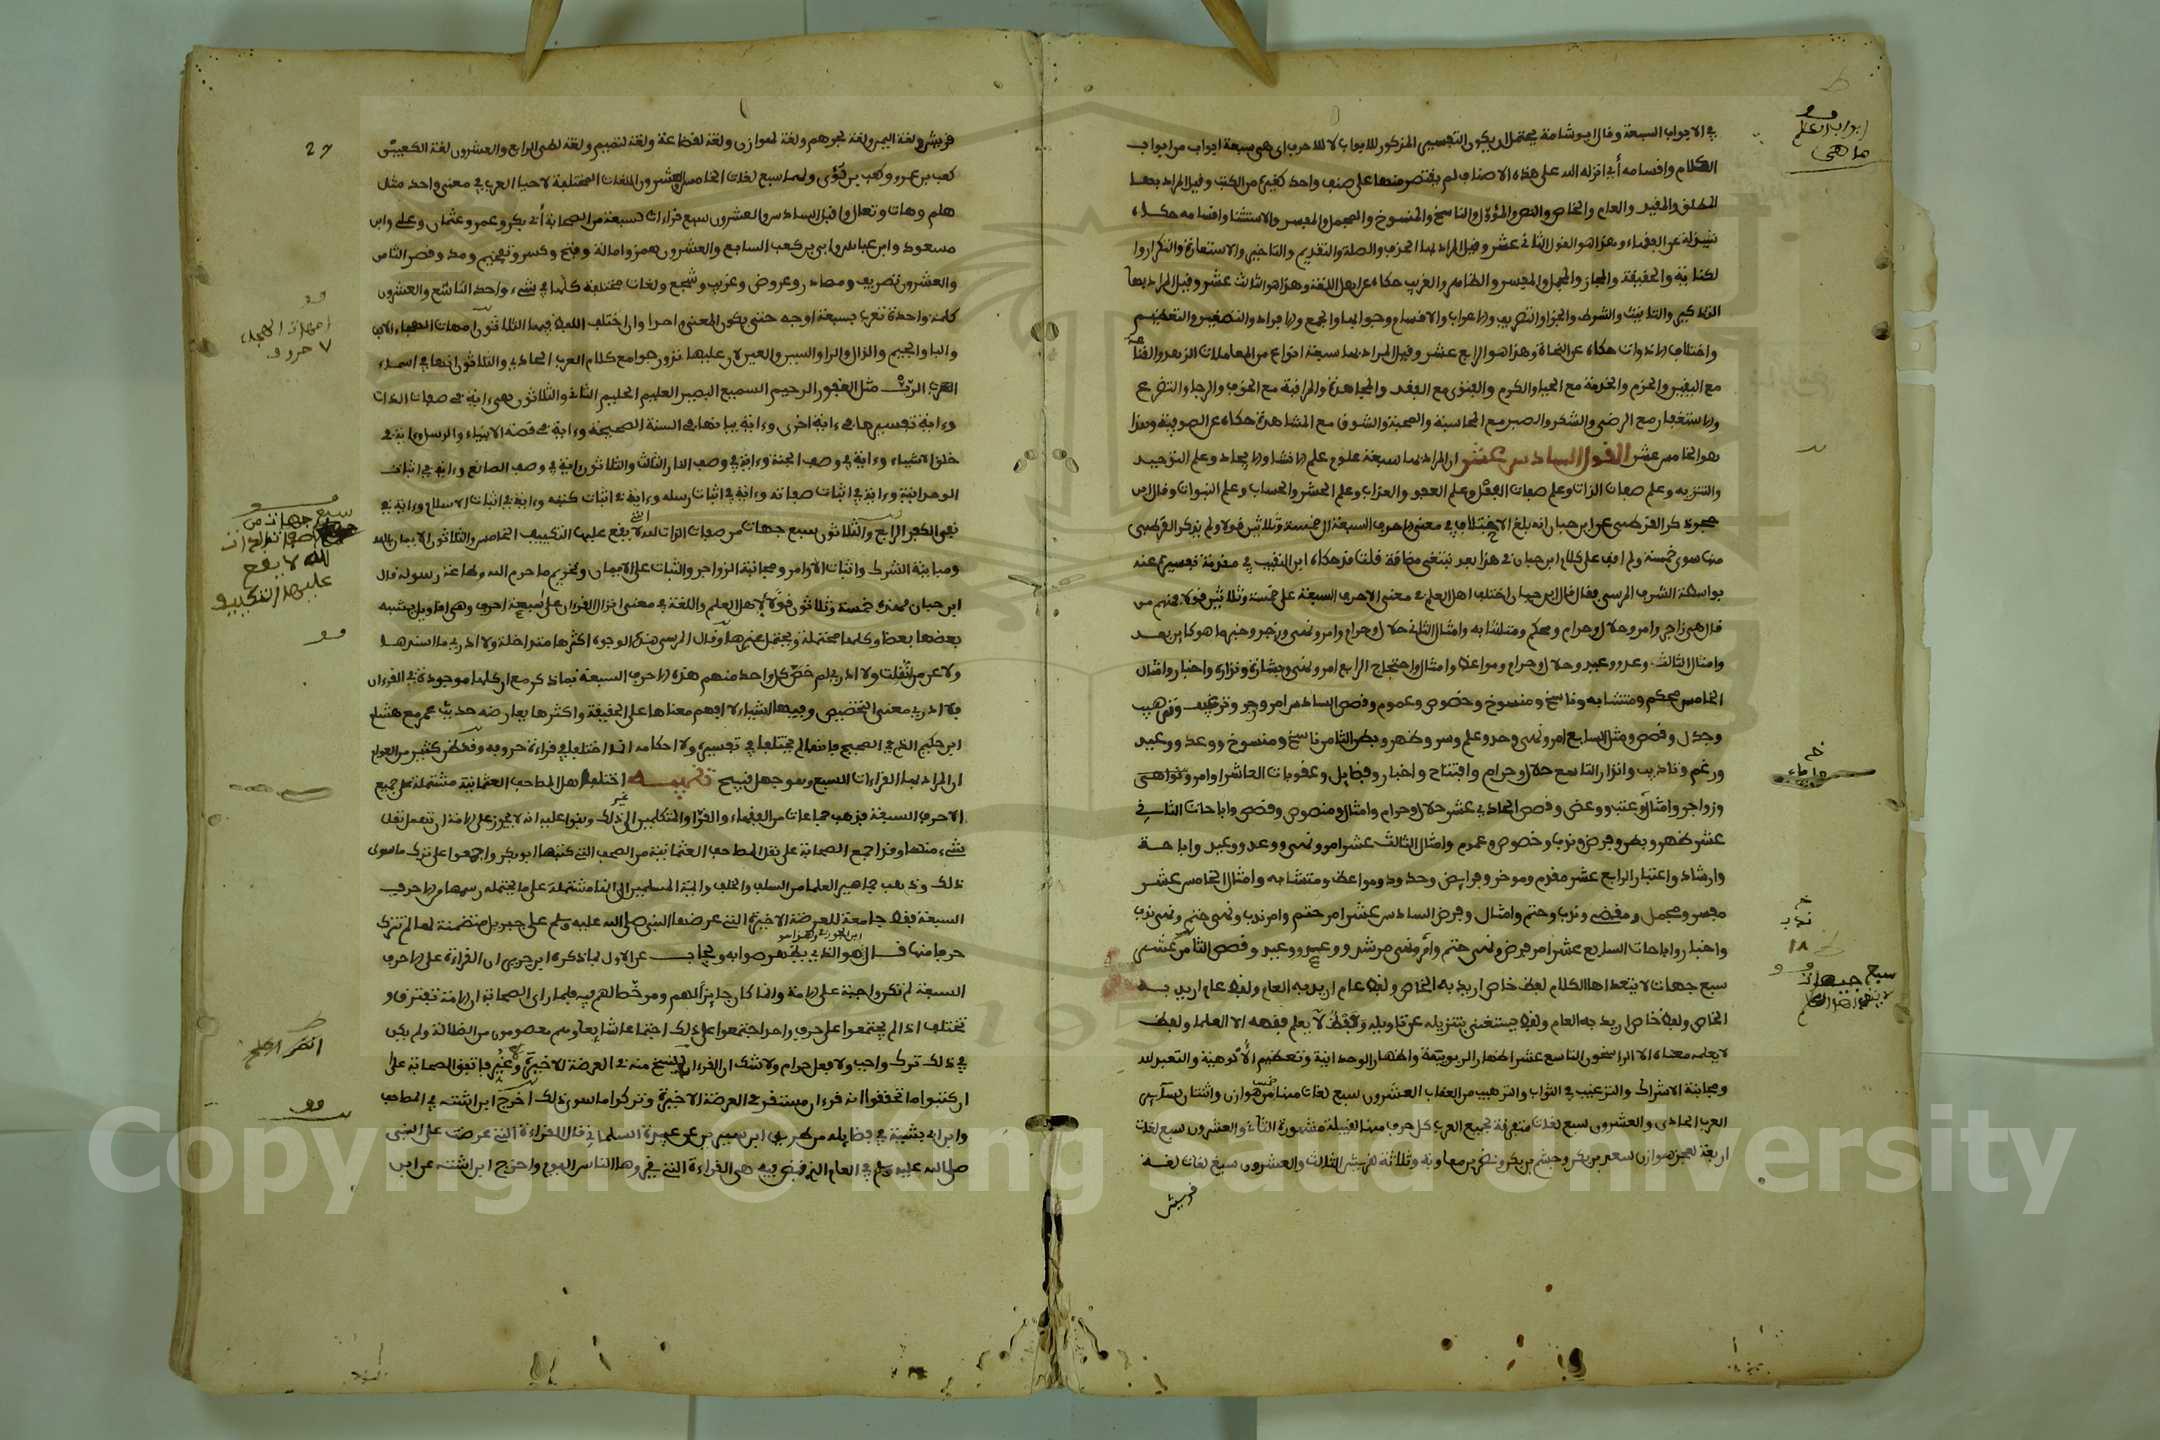 في الابواب السبعة وقال ابو شامة يحتمل ان يكون التفسير المذكور للابواب لا للاحرف اي هي سبعة ابواب من ابواب
الكلام واقسامه أي انزله الله على هذه الاصناف لم يقتصر منها على صنف واحد كغيره من الكتب وقيل المراد بها
المطلق والمقيد والعام والخاص والنص والمؤول والناسخ والمنسوخ والمجمل والمفسر والاستثنا واقسامه حكاه
شيذلة عن الفقهاء وهذا هو القول الثاني عشر وقيل المراد بها الحذف والصلة والتقديم والتاخير والاستعارة والتكرار وا
لكناية والحقيقة والمجاز والمجمل والمفسر والظاهر والغريب حكاه عن اهل اللغة وهذا هو الثالث عشر وقيل المراد بها
التذكير والتانيث والشرط والجزا والتصريف والاعراب والاقسام وجوابها والجمع والافراد والتصغير والتعظيم
واختلاف الادوات حكاه عن النحاة وهذا هو الرابع عشر وقيل المراد بها سبعة انواع من المعاملات الزهد والقناعة
مع اليقين والحزم والخدمة مع الحيا والكرم والفتوى مع الفقد والمجاهدة والمراقبة مع الخوف والرجا والتضرع
والاستغفار مع الرضى والشكر والصبر مع المحاسبة والمحبة والشوق مع المشاهدة حكاه عن الصوفية وهذا
هو الخامس عشر القول السادس عشر ان المراد بها سبعة علوم علم الانشا والايجاد وعلم التوحيد
والتنزيه وعلم صفات الذات وعلم صفات الفعل وعلم العفو والعذاب وعلم الحشر والحساب وعلم النبوات وقال ابن
حجر ذكر القرطبي عن ابن حبان انه بلغ الاختلاف في معنى الاحرف السبعة الى خمسة وثلاثين قولا ولم يذكر القرطبي
منها سوى خمسة ولم اقف على كلام ابن حبان في هذا بعد تتبعي مظانه قلت قد حكاه ابن النقيب في مقدمة تفسيره عنه
بواسطة الشرف المرسي فقال قال ابن حبان اختلف اهل العلم في معنى الاحرف السبعة على خمسة وثلاثين قولا فمنهم من
قال هي زاجر وامر وحلال وحرام ومحكم ومتشابه وامثال الثاني حلال وحرام وامر ونهي وزجر وخبر ما هو كاين بعد
وامثال الثالث وعد ووعيد وحلال وحرام ومواعظ وامثال واحتجاج الرابع امر ونهي وبشارة ونذارة واخبار وامثال
الخامس محكم ومتشابه وناسخ ومنسوخ وخصوص وعموم وقصص السادس امر وزجر وترغيب وترهيب
وجدل وقصص ومثل السابع امر ونهي وحد وعلم وسر وظهر وبطن الثامن ناسخ ومنسوخ ووعد ووعيد
ورغم وتاديب وانذار التاسع حلال وحرام وافتتاح واخبار وفضايل وعقوبات العاشر اوامر ونواهي
وزواجر وامثال وعتب ووعظ وقصص الحادي عشر حلال وحرام وامثال ومنصوص وقصص واباحات الثاني
عشر ظهر وبطن وفرض وندب وخصوص وعموم وامثال الثالث عشر امر ونهي ووعد ووعيد واباحة
وارشاد واعتبار الرابع عشر مقدم وموخر وفرايض وحدود ومواعظ ومتشابه وامثال الخامس عشر
مفسر ومجمل ومقضي وندب وحتم وامثال وفرض السادس عشر امر حتم وامر ندب ونهي حتم ونهي ندب
واخبار واباحات السابع عشر امر فرض ونهي حتم وامر ندب ونهي مرشد ووعد ووعيد وقصص الثامن عشر
سبع جهات لا يتعداها الكلام لفظ خاص اريد به الخاص ولفظ عام اريد به العام ولفظ عام اريد به
الخاص ولفظ خاص اريد به العام ولفظ يستغنى بتنزيله عن تاويله ولفظ لا يعلم فقهه الا العلما ولفظ
لا يعلم معناه الا الراسخون التاسع عشر اظهار الربوبية واظهار الوحدانية وتعظيم الألوهية والتعبد لله
ومجانبة الاشراك والترغيب في الثواب والترهيب من العقاب العشرون سبع لغات منها خمس من هوازن واثنتان لساير
العرب الحادي والعشرون سبع لغات متفرقة لجميع العرب كل حرف منها لقبيلة مشهورة الثاني والعشرون سبع لغات
اربعة لعجز هوازن سعد بن بكر وجشم بن بكر ونصر بن معاوية وثلاثة لقريش الثالث والعشرون سبع لغات لغة
قريش
ابواب العلم
ما هي
ندب
سبع جهات
لا يتعداها الكلام
27
قريش ولغة اليمن ولغة لجرهم ولغة لهوازن ولغة لقضاعة ولغة لتميم ولغة لطي الرابع والعشرون لغة الكعبين
كعب بن عمرو وكعب بن لؤي ولهما سبع لغات الخامس والعشرون اللغات المختلفة لاحيا العرب في معنى واحد مثل
هلم وهات وتعال واقبل السادس والعشرون سبع قراءات لسبعة من الصحابة أبي بكر وعمر وعثمان وعلي وابن
مسعود وابن عباس وابي بن كعب السابع والعشرون همز وامالة وفتح وكسر وتفخيم ومد وقصر الثامن
والعشرون تصريف ومصادر وعروض وغريب وسجع ولغات مختلفة كلها في شيء واحد التاسع والعشرون
كلمة واحدة تعرب بسبعة اوجه حتى يكون المعنى واحدا وان اختلف اللفظ فيها الثلاثون امهات الهجاء الالف
والبا والجيم والدال والرا والسين والعين لان عليها تدور جوامع كلام العرب الحادي والثلاثون انها في اسماء
الرب مثل الغفور الرحيم السميع البصير العليم الحليم الثاني والثلاثون هي ءاية في صفات الذات
وءاية تفسيرها في ءاية اخرى وءاية بيانها في السنة الصحيحة وءاية في قصة الانبياء والرسل وءاية في
خلق الاشياء وءاية في وصف الجنة وءاية في وصف النار الثالث والثلاثون ءاية في وصف الصانع وءاية في اثبات
الوحدانية وءاية في اثبات صفاته وءاية في اثبات رسله وءاية في اثبات كتبه وءاية في اثبات الاسلام وءاية في
نفي الكفر الرابع والثلاثون سبع جهات من صفات الذات لله التي لا يقع عليها التكييف الخامس والثلاثون الايمان بالله
ومباينة الشرك واثبات الاوامر ومجانبة الزواجر والثبات على الايمان وتحريم ما حرم الله وطاعة رسوله قال
ابن حبان فهذه خمسة وثلاثون قولا لاهل العلم واللغة في معنى انزال القران على سبعة احرف وهي اقاويل يشبه
بعضها بعضا وكلها محتملة ويحتمل غيرها وقال المرسي هذه الوجوه اكثرها متداخلة ولا ادري ما استندها
ولا عن من نقلت ولا ادري لم خص كل واحد منهم هذه الاحرف السبعة بما ذكر مع ان كلها موجودة في القران
فلا ادري معنى التخصيص وفيها اشياء لا افهم معناها على الحقيقة واكثرها يعارضه حديث عمر مع هشام
ابن حكيم الذي في الصحيح فانهما لم يختلفا في تفسيره ولا احكامه انما اختلفا في قراءة حروفه وقد ظن كثير من العوام
ان المراد بها القراءات السبع وهو جهل قبيح تنبيه اختلف هل المصاحف العثمانية مشتملة على جميع
الاحرف السبعة فذهب جماعات من الفقهاء والقرا والمتكلمين الى ذلك وبنوا عليه انه لا يجوز على الامة ان تهمل نقل
شيء منها وقد اجمع الصحابة على نقل المصاحف العثمانية من الصحف التي كتبها ابو بكر واجمعوا على ترك ما سوى
ذلك وذهب جماهير العلما من السلف والخلف وايمة المسلمين الى انها مشتملة على ما يحتمله رسمها من الاحرف
السبعة فقط جامعة للعرضة الاخيرة التي عرضها النبي صلى الله عليه وسلم على جبريل متضمنة لها لم تترك
حرفا منها قال ابن الجزري وهذا هو الذي يظهر صوابه ويجاب عن الاول بما ذكره ابن جرير ان القراءة على الاحرف
السبعة لم تكن واجبة على الامة وانما كان جايزا لهم ومرخصا لهم فيه فلما راى الصحابة ان الامة تفترق و
تختلف اذا لم يجتمعوا على حرف واحد اجتمعوا على ذلك اجتماعا شايعا وهم معصومون من الضلالة ولم يكن
في ذلك ترك واجب ولا فعل حرام ولا شك ان القرءان نسخ منه في العرضة الاخيرة وغير فاتفق الصحابة على
ان كتبوا ما تحققوا انه قرءان مستقر في العرضة الاخيرة وتركوا ما سوى ذلك اخرج ابن اشته في المصاحف
وابن ابي شيبة في فضايله من طريق ابن سيرين عن عبيدة السلماني قال القراءة التي عرضت على النبي
صلى الله عليه وسلم في العام الذي قبض فيه هي القراءة التي يقروها الناس اليوم واخرج ابن اشته عن ابن
امهات الهجاء
٧ حروف
سبع جهات من
صفات الذات
لله لا يقع
عليها التكييف
انظر
Copyright © King Saud University